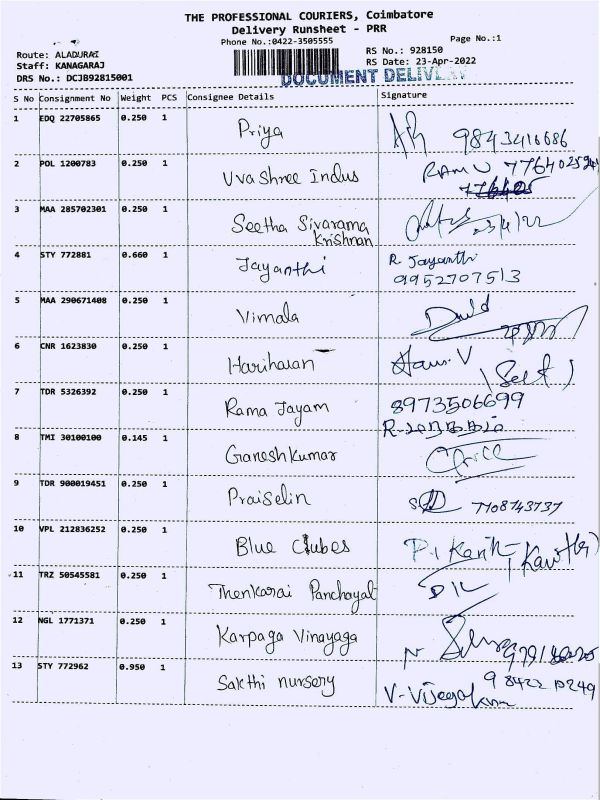 THE PROFESSIONAL COURIERS, Coimbatore
Delivery Runsheet - PRR
Phone No.:0422-3505555
Page No.:1
Route: ALADURAI
Staff: KANAGARAJ
DRS No.: DCJB92815001
RS No.: 928150
RS Date: 23-Apr-2022
DOCUMENT DELIVERY
S No Consignment No Weight PCS Consignee Details Signature
1 EDQ 22705865 0.250 1 Priya 9843416686
2 POL 1200783 0.250 1 Uva Shree Indus RAMU
3 MAA 285702301 0.250 1 Seetha Sivarama
Krishnan 23/4/22
4 STY 772881 0.660 1 Jayanthi R Jayanthi
9952707513
5 MAA 290671408 0.250 1 Vimala
6 CNR 1623830 0.250 1 Hariharan
(Self)
7 TDR 5326392 0.250 1 Rama Jayam 8973506699
8 TMI 30100100 0.145 1 Ganesh Kumar
9 TDR 900019451 0.250 1 Praiselin 7708743737
10 VPL 212836252 0.250 1 Blue Cubes
11 TRZ 50545581 0.250 1 Thenkarai Panchayat
12 NGL 1771371 0.250 1 Karpaga Vinayaga
13 STY 772962 0.950 1 Sakthi nursery